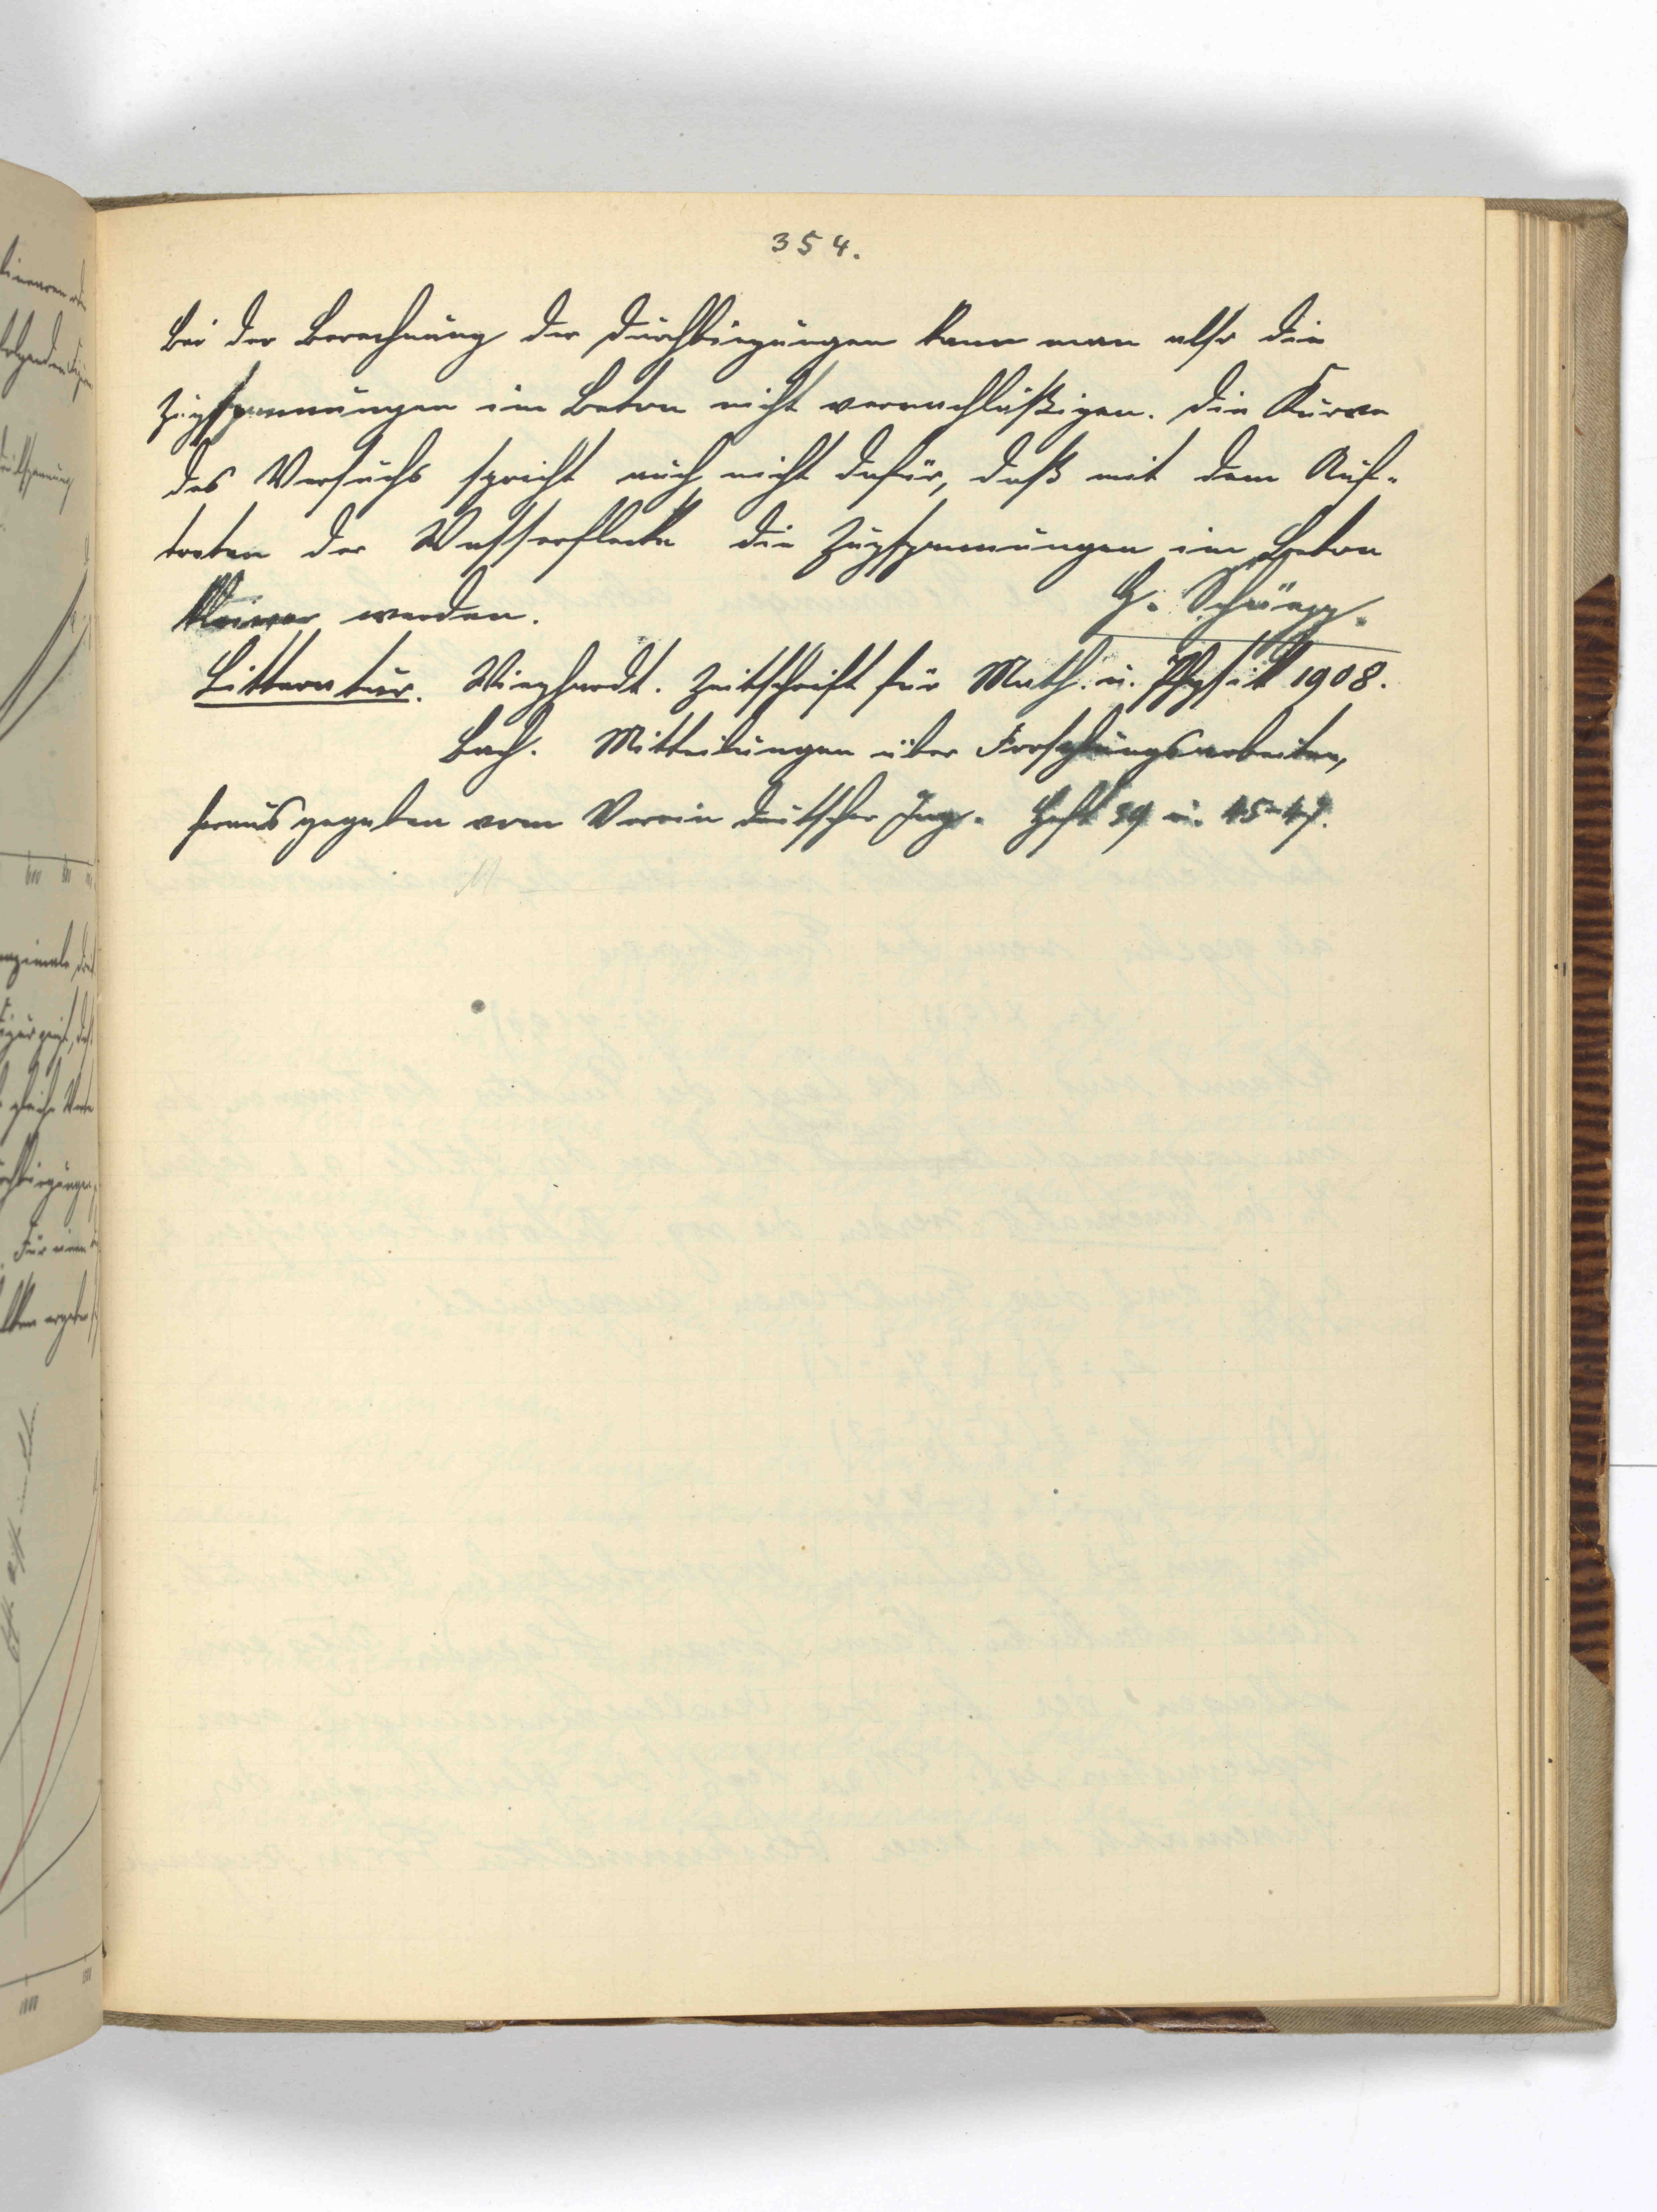 354.
Bei der Berechnung der Durchbiegungen kann man also die
Zugspannungen im Beton nicht vernachläßigen. Die Kurve
des Versuchs spricht auch nicht dafür, daß mit dem Auf-
treten der Wasserflecke die Zugspannungen im Beton
kleiner werden.
H. Schüepp.
Litteratur. Wieghardt. Zeitschrift für Math. u. Physik 1908.
Bach. Mitteilungen über Forschungsarbeiten,
herausgegeben vom Verein deutscher Ing. Heft 39 u. 45-47.